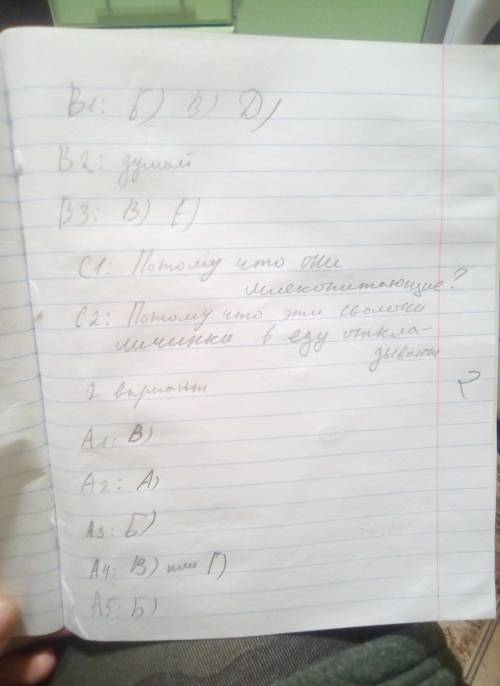 В1: Б) В) Д)
В2: думай
В3: В) Е)
С1: Потому что они
млекопитающие?
С2: Потому что эти сволочи
личинки в еду откла-
дывают
2 вариант
?
А1: В)
А2: А)
А3: Б)
А4: В) или Г)
А5: Б)